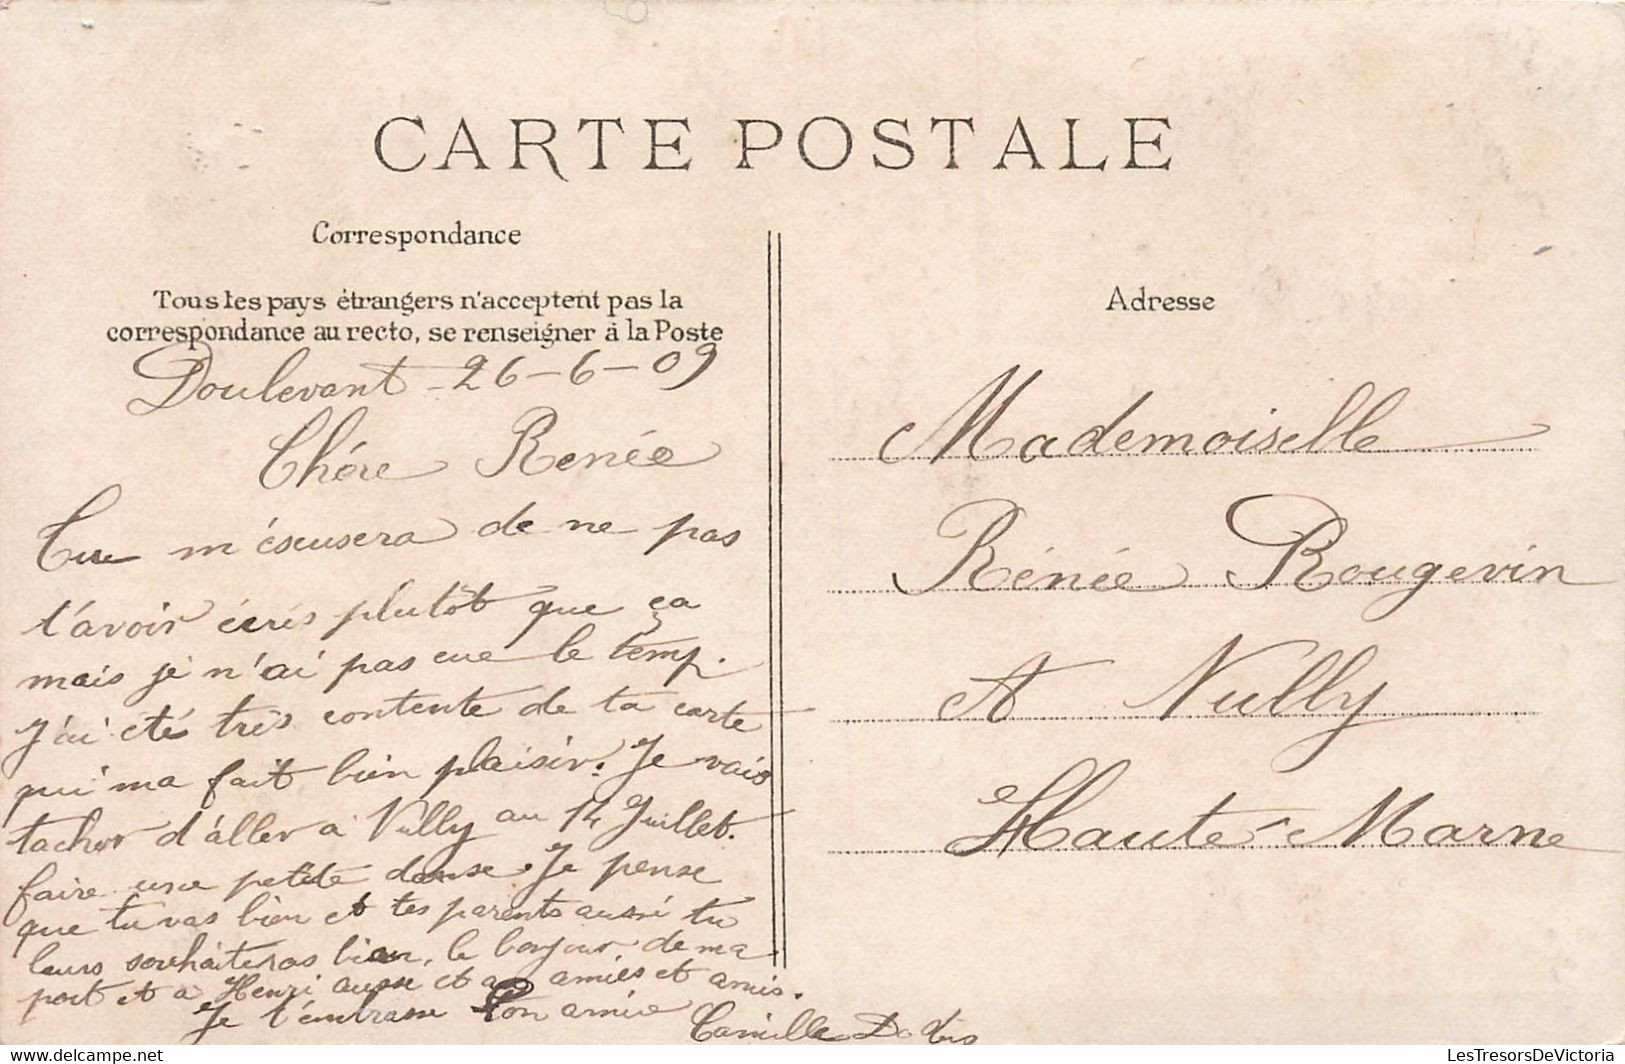 CARTE POSTALE
Correspondance
Tous les pays étrangers n'acceptent pas la
correspondance au recto, se renseigner à la Poste
Doulevant - 26-6-09
Chére Renée
Tu m'éscusera de ne pas
t'avoir écris plutôt que ça
mais je n'ai pas eue le temp.
J'ai été très contente de ta carte
qui ma fait bien plaisir. Je vais
tacher d'aller a Nully au 14 Juillet.
faire une petite danse. Je pense
que tu vas bien et tes parents aussi tu
leurs souhaiteras bien, le bonjour de ma
part et a Henri aussi et amies et amis.
Je t'embrasse Ton amie
Camille
Adresse
Mademoiselle
Rénée Rougevin
A Nully
Haute-Marne
LesTresorsDeVictoria https://www.delcampe.net
LesTresorsDeVictoria